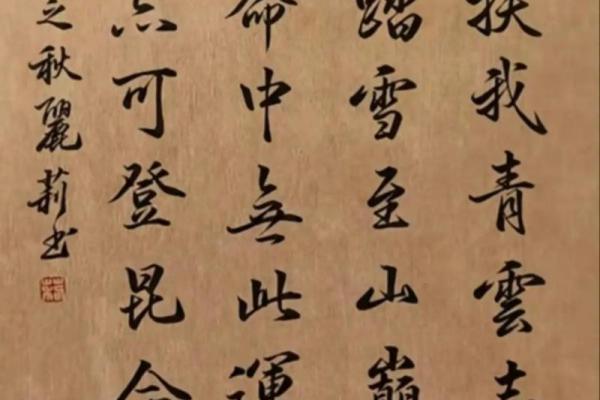 扶我青雲志
踏雪至山巔
命中無此運
亦可登昆
之秋麗莉书